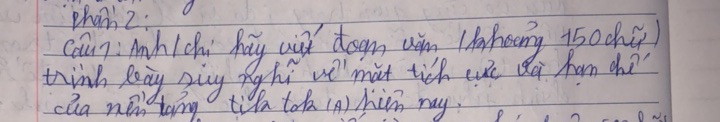 Phần 2:
Câu 1: Anh/chị hãy viết đoạn văn (khoảng 150 chữ)
trình bày suy nghĩ về mặt tích cực và hạn chế
của nền tảng tik tok (A) hiện nay.